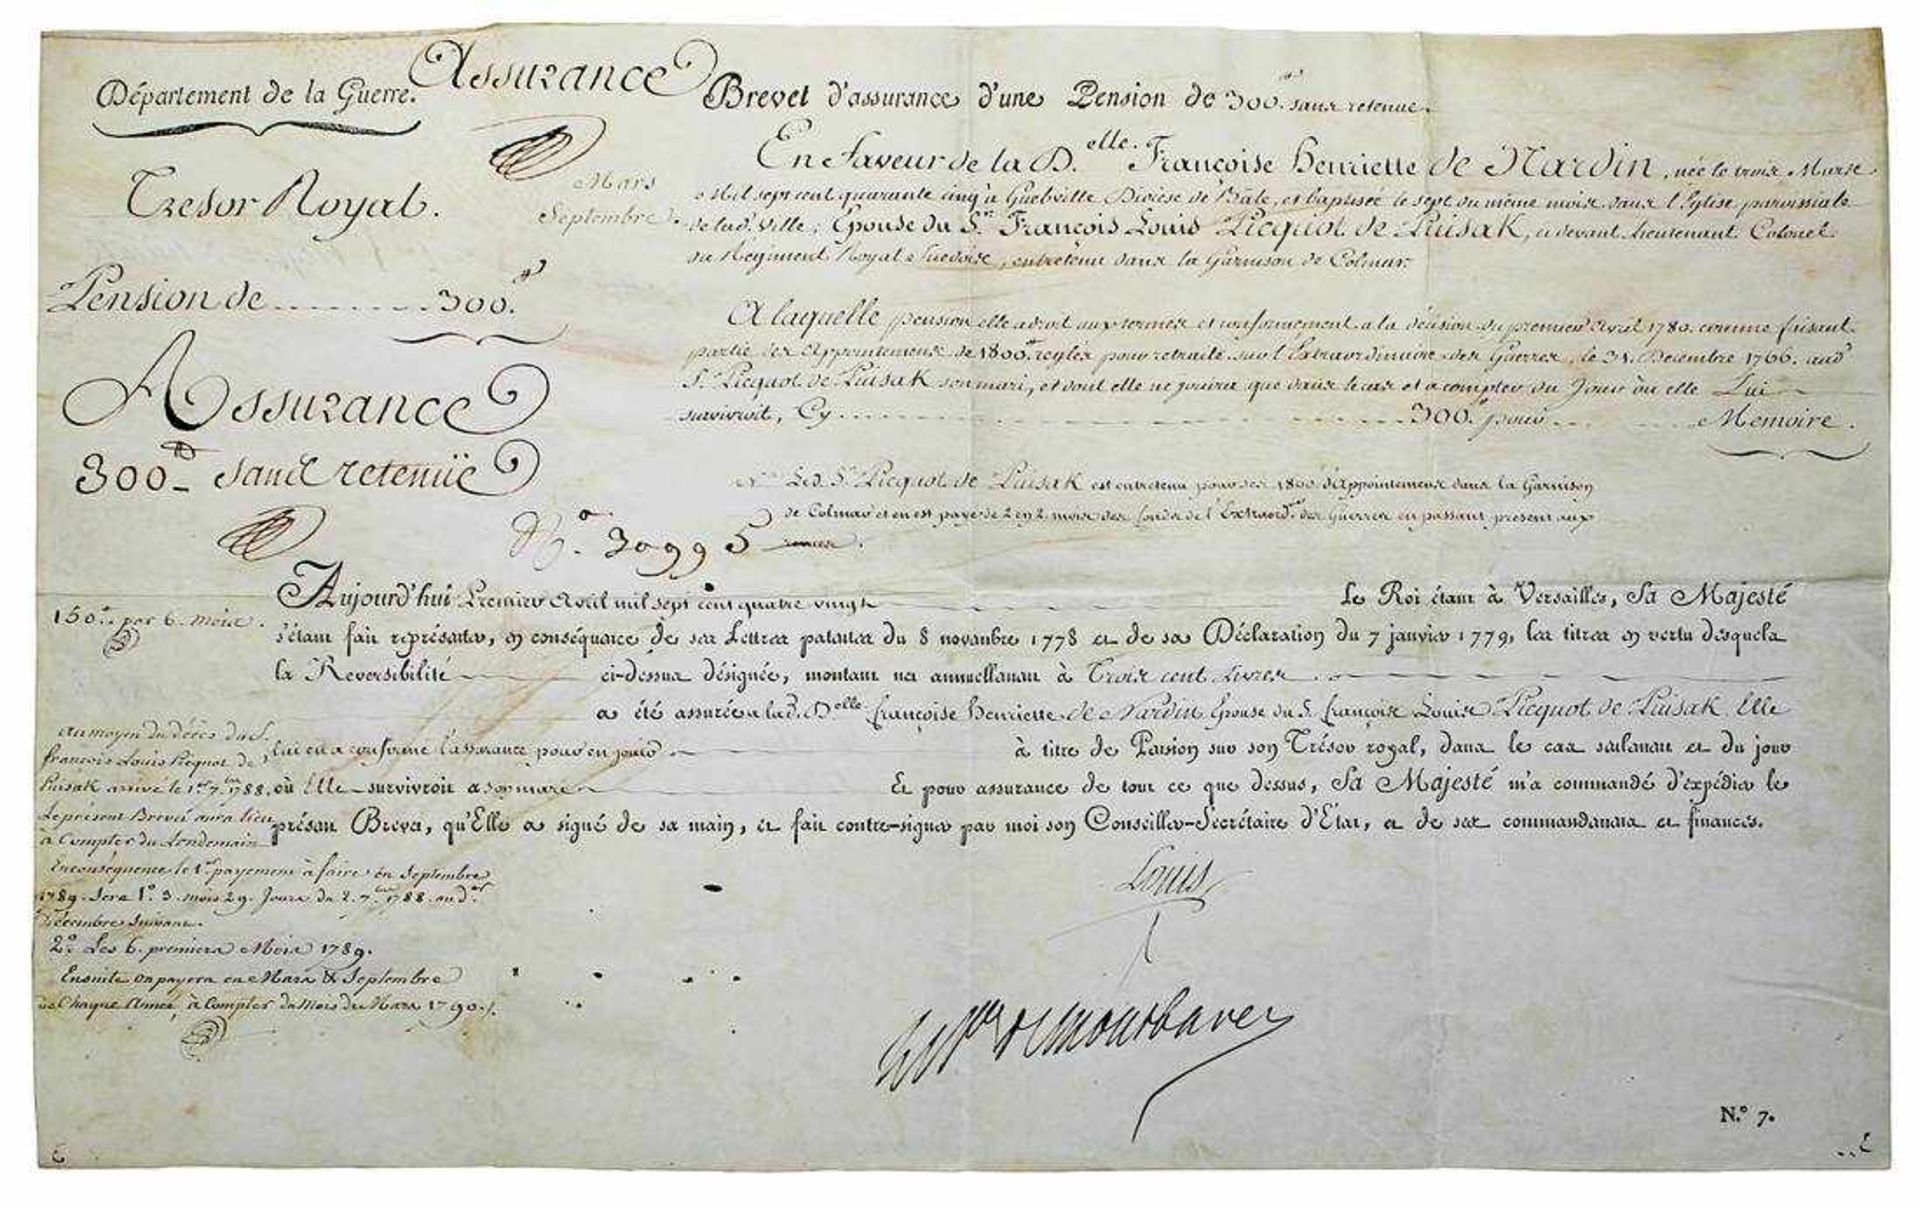 Département de la Guerre.
Assurance
Brevet d'assurance d'une Pension de 300.ᵗᵗ sans retenue.
Tresor Royal.
Mars
Septembre.
En faveur de la D.elle. Françoise Henriette de Nardin, née le trois Mars
Mil sept cent quarante cinq à Guebville Diocèse de Bâle, et baptisée le sept du même mois dans l'Eglise paroissiale
de lad. Ville; Epouse du S.r François Louis Picquot de Puisak, ci devant Lieutenant Colonel
du Régiment Royal Suedois, entretenu dans la Garnison de Colmar.
Pension de ........ 300.ᵗᵗ
A laquelle pension elle a droit aux termes et conformement a la décision du premier Avril 1780. comme faisant
partie des Appointemens de 1800.ᵗᵗ reglés pour retraite sur l'Extraordinaire des Guerres, le 31. Decembre 1766. aud.
S.r Picquot de Puisak son mari, et dont elle ne jouira que dans le cas et a compter du Jour où elle Lui
survivroit, Cy ........ 300.ᵗᵗ pour ... Memoire.
Assurance
300.ᵗᵗ sans retenüe
Led. S.r Picquot de Puisak est entretenu pour ses 1800.ᵗᵗ d'Appointemens dans la Garnison
de Colmar et en est payé de 2 en 2. mois des fonds de l'Extraord.re des Guerres en passant présent aux
revues.
N.o 30995
150.ᵗᵗ par 6. mois.
Aujourd'hui Premier Avril mil sept cent quatre vingt Le Roi étant à Versailles, Sa Majesté
s'étant fait représenter, en conséquence de ses Lettres patentes du 8 novembre 1778 et de sa Déclaration du 7 janvier 1779, les titres en vertu desquels
la Reversibilité ci-dessus désignée, montant net annuellement à Trois cent livres.
a été assurée a lad. D.elle françoise henriette de Nardin Epouse du S. françois Louis Picquot de Puisak Elle
lui en a confirmé l'assurance pour en jouir à titre de Pension sur son Trésor royal, dans le cas seulement et du jour
où Elle survivroit a son mari Et pour assurance de tout ce que dessus, Sa Majesté m'a commandé d'expédier le
présent Brevet, qu'Elle a signé de sa main, et fait contre-signer par moi son Conseiller-Secrétaire d'Etat, et de ses commandemens et finances.
au moyen du décès du S.
françois Louis Picquot de
Puisak arrivé le 1.er 7.bre 1788.
Le présent Brevet aura lieu
à Compter du Lendemain
Enconséquence le 1.er payement à faire en Septembre
1789. sera 1.o 3. mois 29. Jours du 2. 7.bre 1788. aud.
Décembre suivant.
2.o Les 6. premiers Mois 1789.
Ensuite on payera en Mars & Septembre
de Chaque Année, à Compter du Mois de Mars 1790./.
Louis
le P.ce de Montbarey
N.o 7.